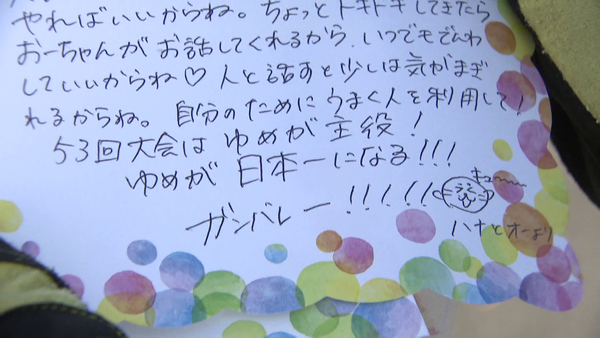 やればいいからね。ちょっとドキドキしてきたら
おーちゃんがお話してくれるから、いつでもでんわ
していいからね♡人と話すと少しは気がまぎ
れるからね。自分のためにうまく人を利用して!
53回大会はゆめが主役!
ゆめが日本一になる!!!
ガンバレー!!!!!
キュ〜
ハナとオーより